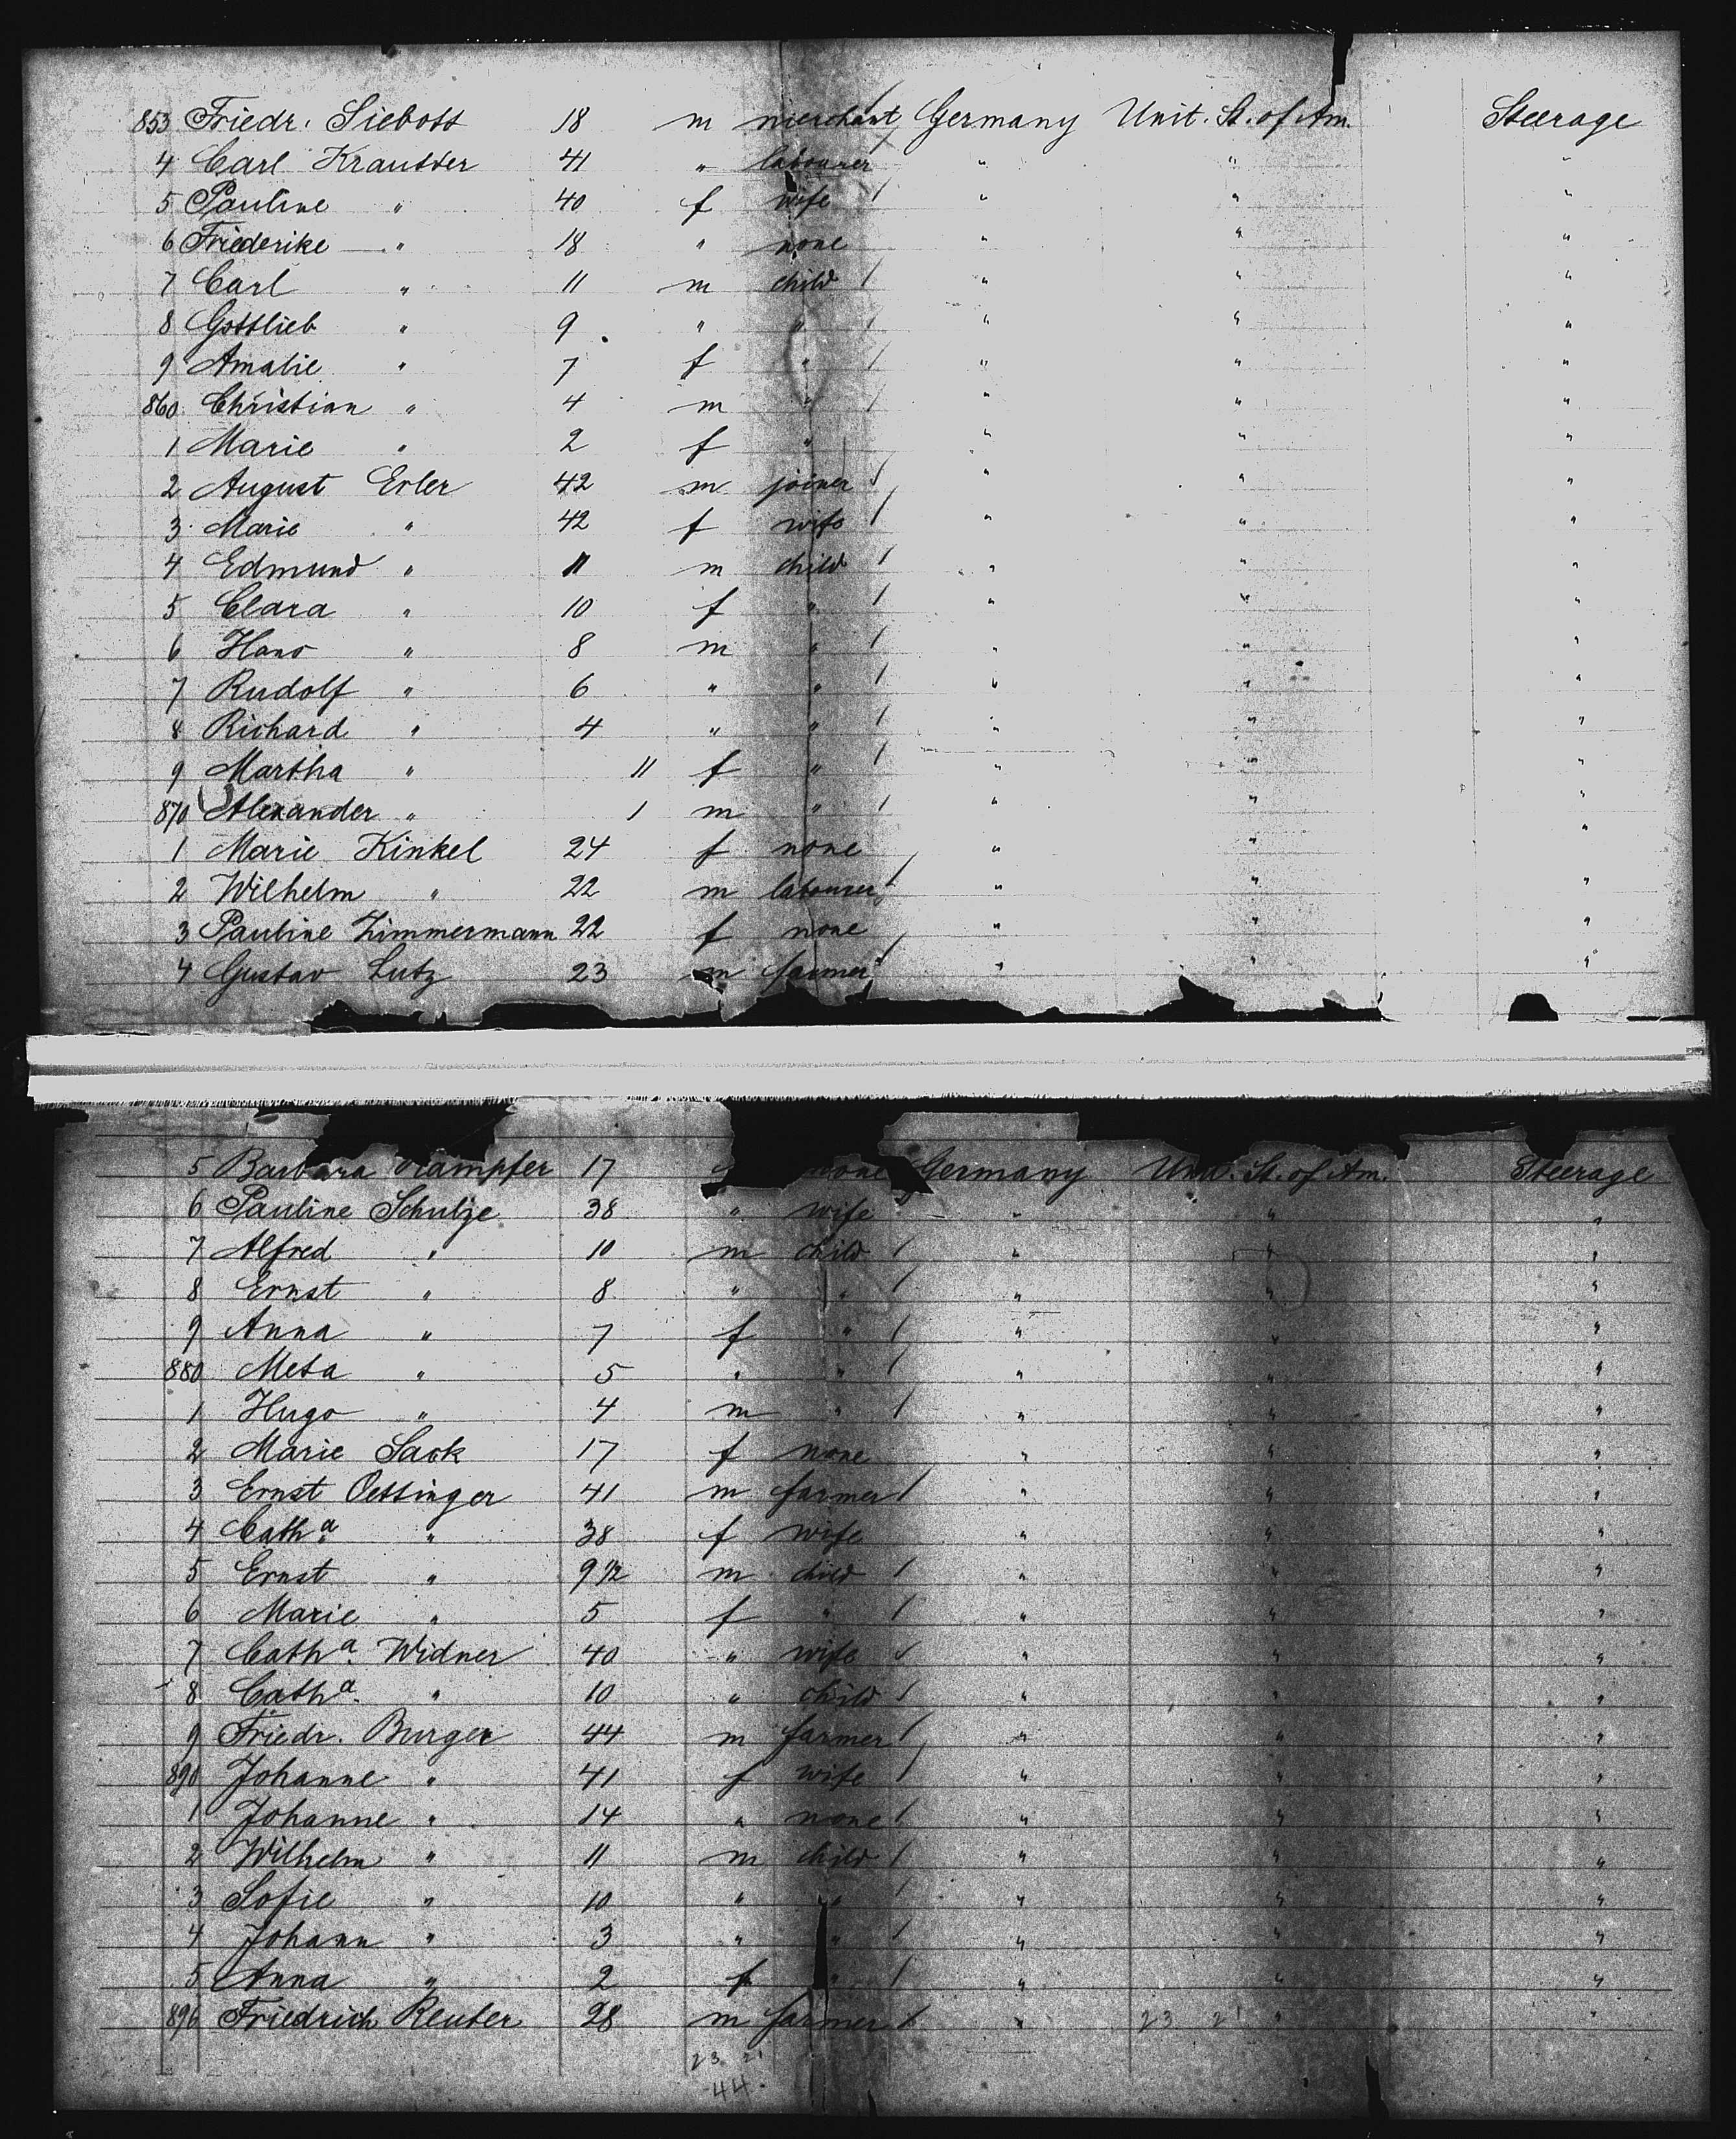 853 Friedr. Siebott 18 m merchant Germany Unit. St. of Am. Steerage
4 Carl Krautter 41 " labourer " " "
5 Pauline " 40 f wife " " "
6 Friederike " 18 " none " " "
7 Carl " 11 m child " " "
8 Gottlieb " 9 " " " " "
9 Amalie " 7 f " " " "
860 Christian " 4 m " " " "
1 Marie " 2 f " " " "
2 August Erler 42 m joiner " " "
3 Marie " 42 f wife " " "
4 Edmund " 11 m child " " "
5 Clara " 10 f " " " "
6 Hans " 8 m " " " "
7 Rudolf " 6 " " " " "
8 Richard " 4 " " " " "
9 Martha " 11 f " " " "
870 Alexander " 1 m " " " "
1 Marie Kinkel 24 f none " "
2 Wilhelm " 22 m labourer " " "
3 Pauline Zimmermann 22 f none " " "
4 Gustav Lutz 23 m farmer " " "
5 Barbara Kampfer 17 none Germany Unit. St. of Am. Steerage
6 Pauline Schulze 38 " wife " " "
7 Alfred " 10 m child " " "
8 Ernst " 8 " " " " "
9 Anna " 7 f " " " "
880 Meta " 5 " " " " "
1 Hugo " 4 m " " " "
2 Marie Sack 17 f none " " "
3 Ernst Oettinger 41 m farmer " " "
4 Cath.a " 38 f wife " " "
5 Ernst " 9 1/2 m child " " "
6 Marie " 5 f " " " "
7 Cath.a Widner 40 " wife " " "
8 Cath.a " 10 " child " " "
9 Friedr. Burger 44 m farmer " " "
890 Johanne " 41 f wife " " "
1 Johanne " 14 " none " " "
2 Wilhelm " 11 m child " " "
3 Sofie " 10 " " " " "
4 Johann " 3 " " " " "
5 Anna " 2 f " " " "
896 Friedrich Reuter 28 m farmer " 23 21 " "
23 21
44